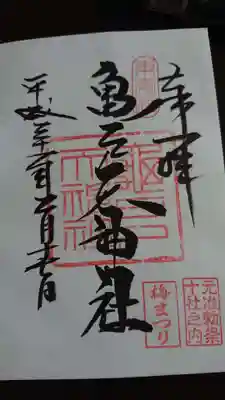 奉拝
亀戸天神社
平成三十一年二月十一日
亀戸天神社
元准勅祭
十社之内
梅まつり